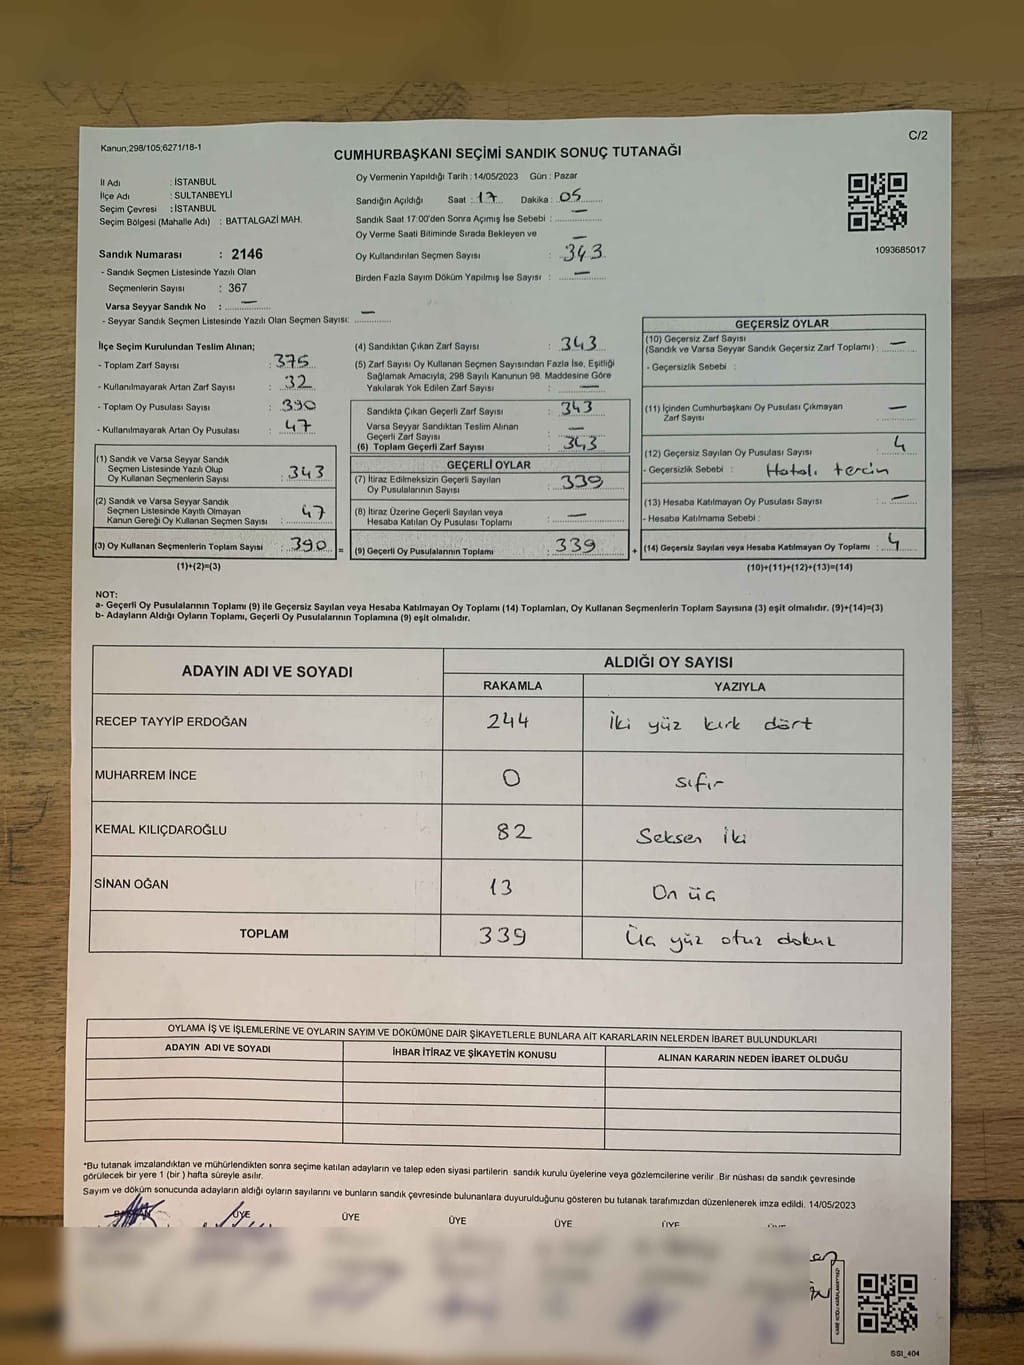 Kanun;298/105;6271/18-1
C/2
CUMHURBAŞKANI SEÇİMİ SANDIK SONUÇ TUTANAĞI
İl Adı : İSTANBUL
İlçe Adı : SULTANBEYLİ
Seçim Çevresi : İSTANBUL
Seçim Bölgesi (Mahalle Adı) : BATTALGAZİ MAH.
Oy Vermenin Yapıldığı Tarih : 14/05/2023 Gün : Pazar
Sandığın Açıldığı Saat : 17 Dakika : 05
Sandık Saat 17:00'den Sonra Açımış İse Sebebi : —
Oy Verme Saati Bitiminde Sırada Bekleyen ve —
Oy Kullandırılan Seçmen Sayısı : 343
Birden Fazla Sayım Döküm Yapılmış İse Sayısı : —
1093685017
Sandık Numarası : 2146
- Sandık Seçmen Listesinde Yazılı Olan
Seçmenlerin Sayısı : 367
Varsa Seyyar Sandık No : —
- Seyyar Sandık Seçmen Listesinde Yazılı Olan Seçmen Sayısı: —
İlçe Seçim Kurulundan Teslim Alınan;
- Toplam Zarf Sayısı : 375
- Kullanılmayarak Artan Zarf Sayısı : 32
- Toplam Oy Pusulası Sayısı : 390
- Kullanılmayarak Artan Oy Pusulası : 47
(1) Sandık ve Varsa Seyyar Sandık
Seçmen Listesinde Yazılı Olup
Oy Kullanan Seçmenlerin Sayısı : 343
(2) Sandık ve Varsa Seyyar Sandık
Seçmen Listesinde Kayıtlı Olmayan
Kanun Gereği Oy Kullanan Seçmen Sayısı : 47
(3) Oy Kullanan Seçmenlerin Toplam Sayısı : 390 =
(1)+(2)=(3)
(4) Sandıktan Çıkan Zarf Sayısı : 343
(5) Zarf Sayısı Oy Kullanan Seçmen Sayısından Fazla İse, Eşitliği
Sağlamak Amacıyla; 298 Sayılı Kanunun 98. Maddesine Göre
Yakılarak Yok Edilen Zarf Sayısı : —
Sandıkta Çıkan Geçerli Zarf Sayısı : 343
Varsa Seyyar Sandıktan Teslim Alınan
Geçerli Zarf Sayısı : —
(6) Toplam Geçerli Zarf Sayısı : 343
GEÇERLİ OYLAR
(7) İtiraz Edilmeksizin Geçerli Sayılan
Oy Pusulalarının Sayısı : 339
(8) İtiraz Üzerine Geçerli Sayılan veya
Hesaba Katılan Oy Pusulası Toplamı : —
(9) Geçerli Oy Pusulalarının Toplamı : 339 +
GEÇERSİZ OYLAR
(10) Geçersiz Zarf Sayısı
(Sandık ve Varsa Seyyar Sandık Geçersiz Zarf Toplamı) : —
- Geçersizlik Sebebi :
(11) İçinden Cumhurbaşkanı Oy Pusulası Çıkmayan
Zarf Sayısı —
(12) Geçersiz Sayılan Oy Pusulası Sayısı : 4
- Geçersizlik Sebebi : Hatalı tercih
(13) Hesaba Katılmayan Oy Pusulası Sayısı : —
- Hesaba Katılmama Sebebi :
(14) Geçersiz Sayılan veya Hesaba Katılmayan Oy Toplamı : 4
(10)+(11)+(12)+(13)=(14)
NOT:
a- Geçerli Oy Pusulalarının Toplamı (9) ile Geçersiz Sayılan veya Hesaba Katılmayan Oy Toplamı (14) Toplamları, Oy Kullanan Seçmenlerin Toplam Sayısına (3) eşit olmalıdır. (9)+(14)=(3)
b- Adayların Aldığı Oyların Toplamı, Geçerli Oy Pusulalarının Toplamına (9) eşit olmalıdır.
ADAYIN ADI VE SOYADI
ALDIĞI OY SAYISI
RAKAMLA YAZIYLA
RECEP TAYYİP ERDOĞAN 244 İki yüz kırk dört
MUHARREM İNCE 0 sıfır
KEMAL KILIÇDAROĞLU 82 Seksen iki
SİNAN OĞAN 13 On üç
TOPLAM 339 Üç yüz otuz dokuz
OYLAMA İŞ VE İŞLEMLERİNE VE OYLARIN SAYIM VE DÖKÜMÜNE DAİR ŞİKAYETLERLE BUNLARA AİT KARARLARIN NELERDEN İBARET BULUNDUKLARI
ADAYIN ADI VE SOYADI İHBAR İTİRAZ VE ŞİKAYETİN KONUSU ALINAN KARARIN NEDEN İBARET OLDUĞU
*Bu tutanak imzalandıktan ve mühürlendikten sonra seçime katılan adayların ve talep eden siyasi partilerin sandık kurulu üyelerine veya gözlemcilerine verilir. Bir nüshası da sandık çevresinde
görülecek bir yere 1 (bir) hafta süreyle asılır.
Sayım ve döküm sonucunda adayların aldığı oyların sayılarını ve bunların sandık çevresinde bulunanlara duyurulduğunu gösteren bu tutanak tarafımızdan düzenlenerek imza edildi. 14/05/2023
BAŞKAN ÜYE ÜYE ÜYE ÜYE ÜYE ÜYE
SSI_404